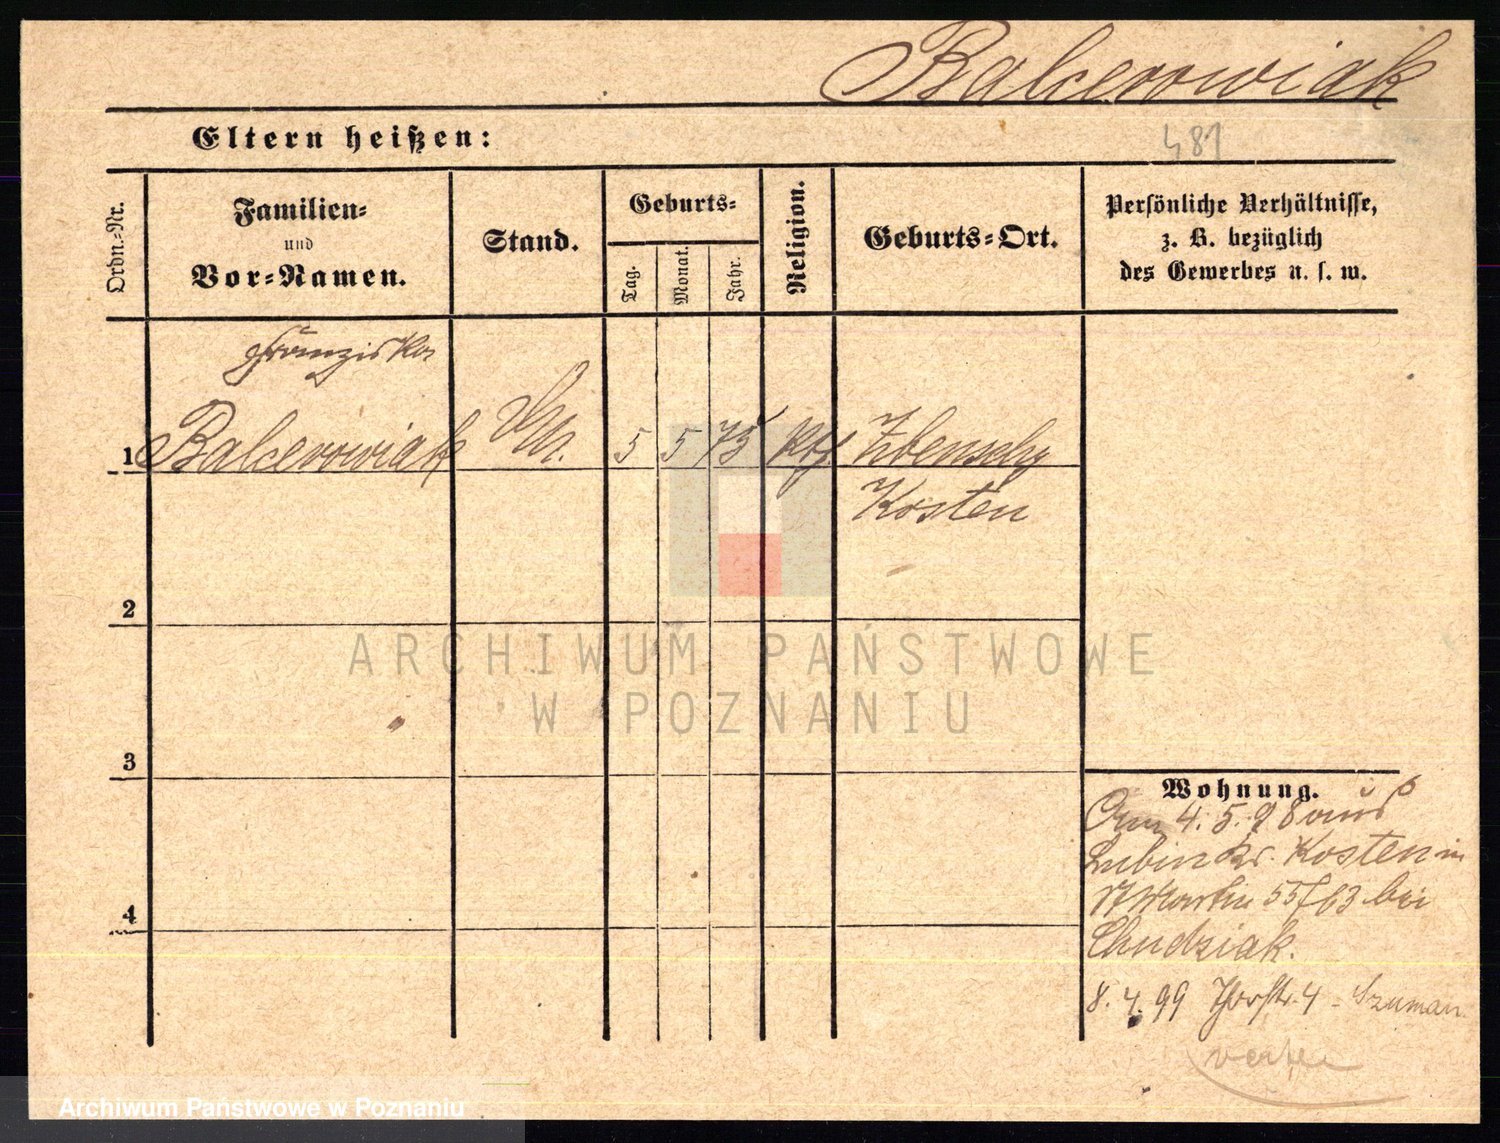 Balcerowiak
Eltern heißen:
481
Ordn.-Nr.
Familien-
und
Vor-Namen.
Stand.
Geburts-
Tag.
Monat.
Jahr.
Religion.
Geburts-Ort.
Persönliche Verhältnisse,
z. B. bezüglich
des Gewerbes u. s. w.
Franziska
1 Balcerowiak 5 5 75 Kth. Zbenschy
Kosten
2
3
4
Wohnung.
4.5.98 aus
Lubin Kr. Kosten in
St Martin 55/63 bei
Chudziak.
8.4.99 Thorstr. 4 - Szuman
verte
ARCHIWUM PAŃSTWOWE
W POZNANIU
Archiwum Państwowe w Poznaniu